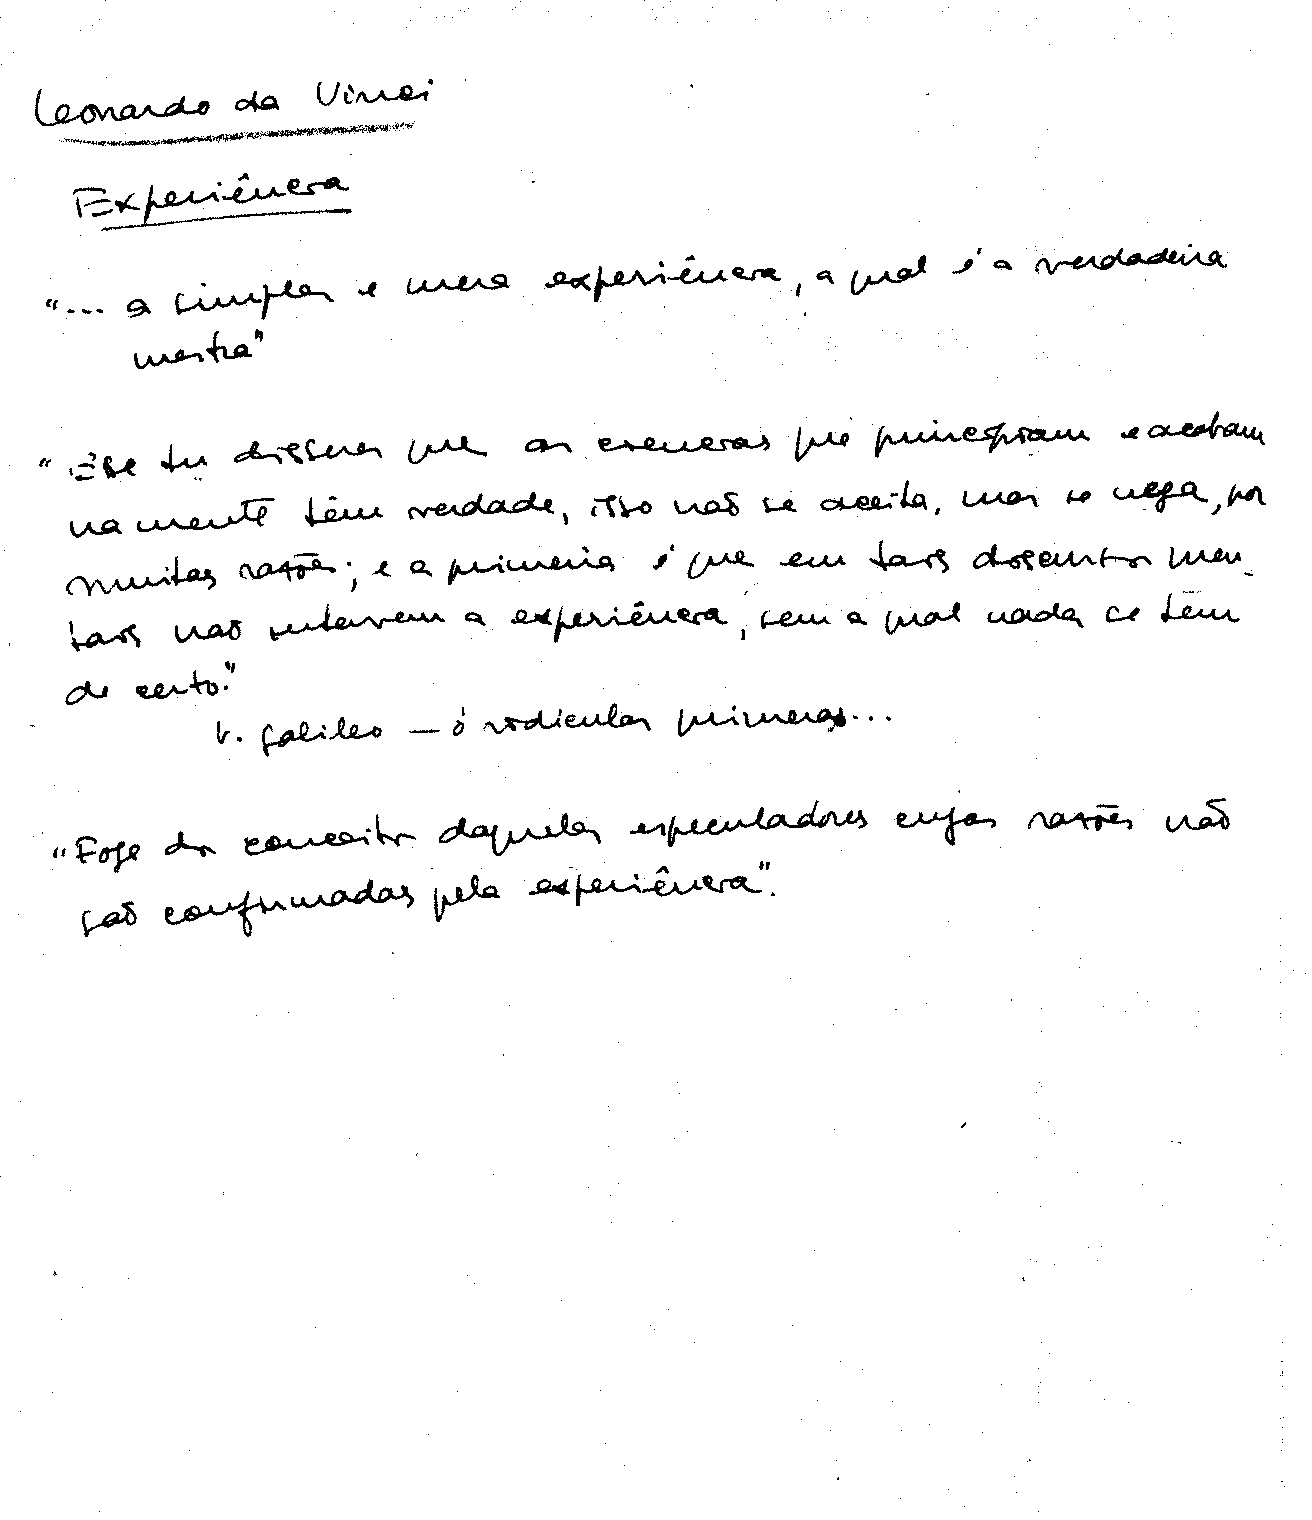 Leonardo da Vinci
Experiência
"... a simples e mera experiência, a qual é a verdadeira
mestra"
"E se tu disseres que as ciencias que principiam e acabam
na mente têm verdade, isso não se aceita, mas se nega, por
muitas razões; e a primeira é que em tais discursos men-
tais não intervem a experiência, sem a qual nada se tem
de certo."
v. Galileo — ó ridiculas primeras...
"Foge dos conceitos daqueles especuladores cujas razões não
são confirmadas pela experiência".